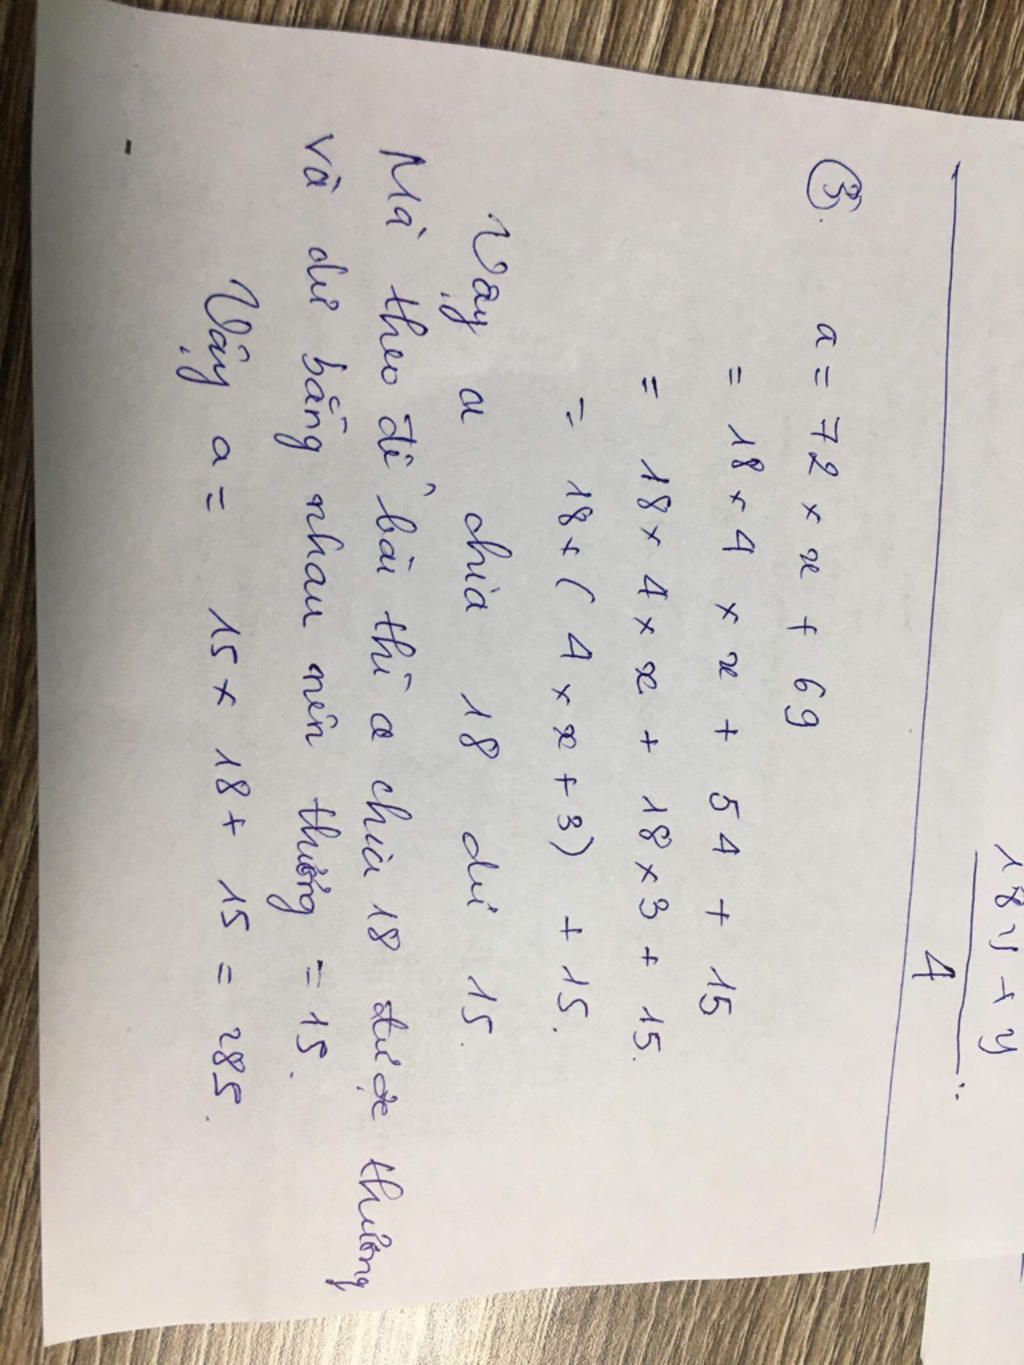 18y + y
4
③. a = 72 × x + 69
= 18 × 4 × x + 54 + 15
= 18 × 4 × x + 18 × 3 + 15.
= 18 × ( 4 × x + 3) + 15.
Vậy a chia 18 dư 15.
Mà theo đề bài thì a chia 18 được thương
và dư bằng nhau nên thương = 15.
Vậy a = 15 × 18 + 15 = 285.